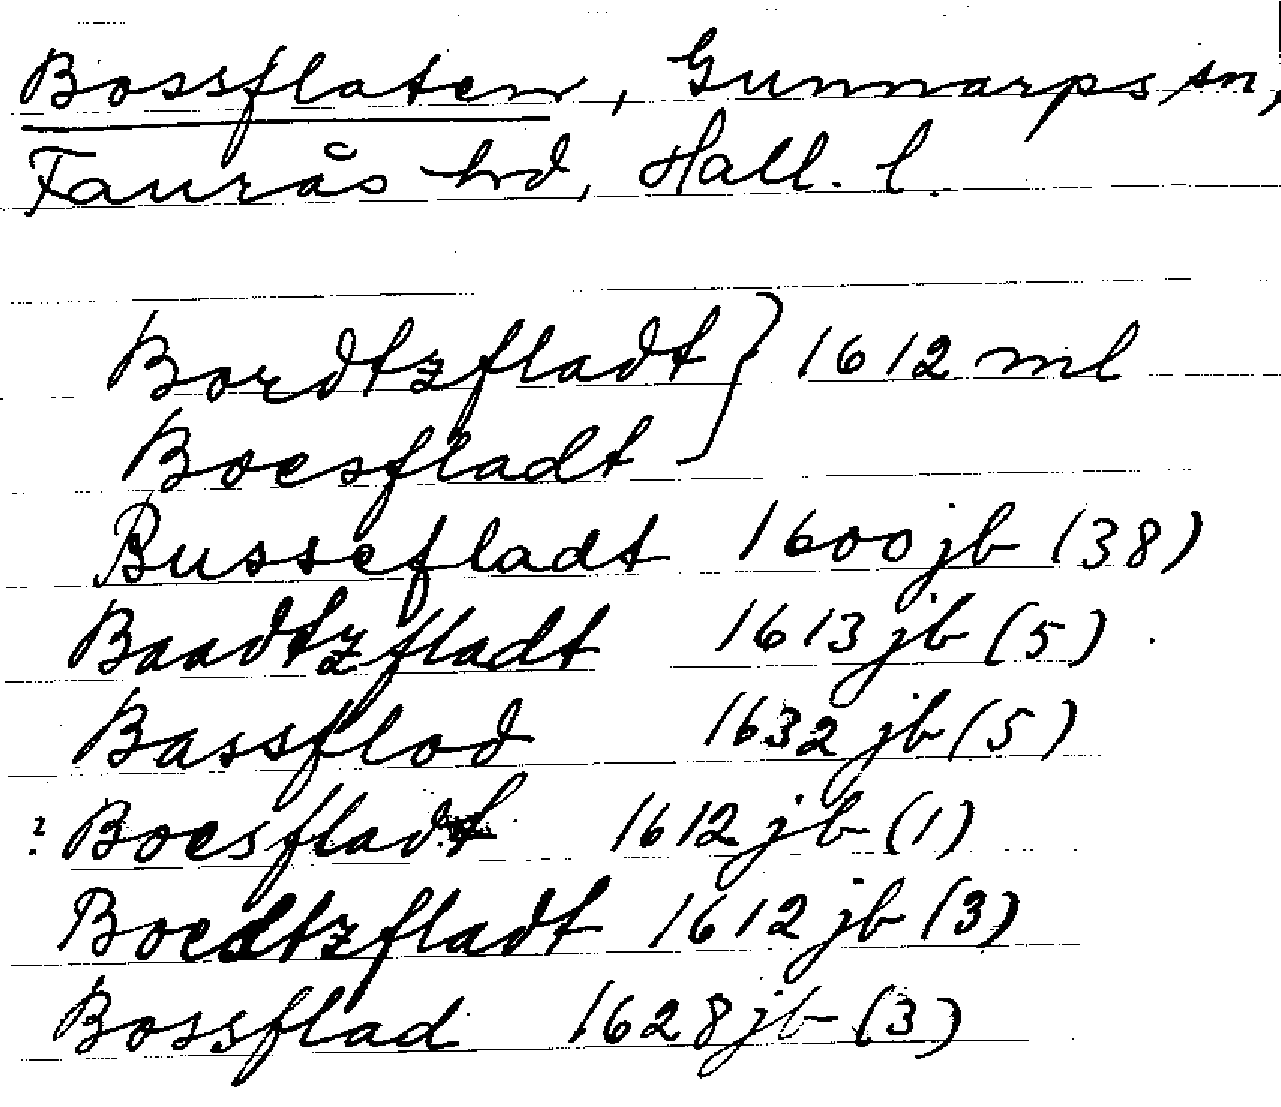 Bossflaten, Gunnarps sn,
Faurås hrd, Hall. l.
Bordtzfladt } 1612 ml
Boesfladt
Bussefladt 1600 jb (38)
Baadtzfladt 1613 jb (5)
Bassflod 1632 jb (5)
? Boesfladt 1612 jb (1)
Boedtzfladt 1612 jb (3)
Bossflad 1628 jb (3)